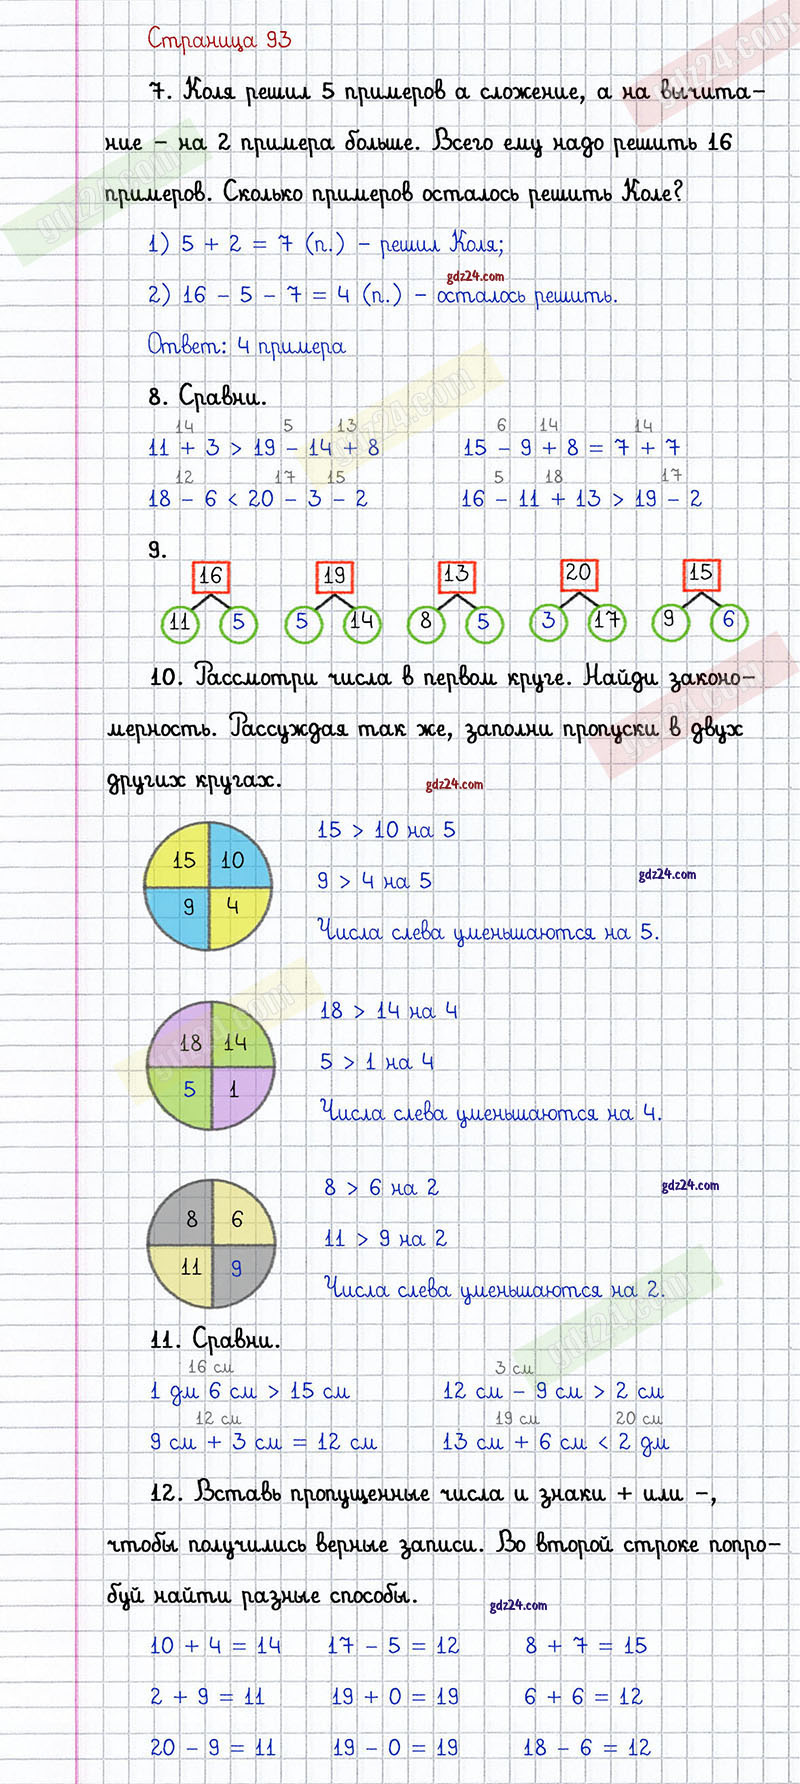 Страница 93
gdz24.com
7. Коля решил 5 примеров а сложение, а на вычита-
ние - на 2 примера больше. Всего ему надо решить 16
gdz24.com
примеров. Сколько примеров осталось решить Коле?
1) 5 + 2 = 7 (п.) - решил Коля;
gdz24.com
2) 16 - 5 - 7 = 4 (п.) - осталось решить.
Ответ: 4 примера
8. Сравни.
gdz24.com
14 5 13 6 14 14
11 + 3 > 19 - 14 + 8 15 - 9 + 8 = 7 + 7
12 17 15 5 18 17
18 - 6 < 20 - 3 - 2 16 - 11 + 13 > 19 - 2
9.
16 19 13 20 15
11 5 5 14 8 5 3 17 9 6
10. Рассмотри числа в первом круге. Найди законо-
мерность. Рассуждая так же, заполни пропуски в двух
gdz24.com
других кругах.
gdz24.com
15 > 10 на 5
15 10
9 > 4 на 5
gdz24.com
9 4
Числа слева уменьшаются на 5.
18 > 14 на 4
gdz24.com
18 14
5 > 1 на 4
5 1
Числа слева уменьшаются на 4.
8 > 6 на 2
gdz24.com
8 6
11 > 9 на 2
11 9
Числа слева уменьшаются на 2.
gdz24.com
11. Сравни.
16 см 3 см
1 дм 6 см > 15 см 12 см - 9 см > 2 см
12 см 19 см 20 см
9 см + 3 см = 12 см 13 см + 6 см < 2 дм
12. Вставь пропущенные числа и знаки + или -,
чтобы получились верные записи. Во второй строке попро-
буй найти разные способы.
gdz24.com
10 + 4 = 14 17 - 5 = 12 8 + 7 = 15
2 + 9 = 11 19 + 0 = 19 6 + 6 = 12
20 - 9 = 11 19 - 0 = 19 18 - 6 = 12